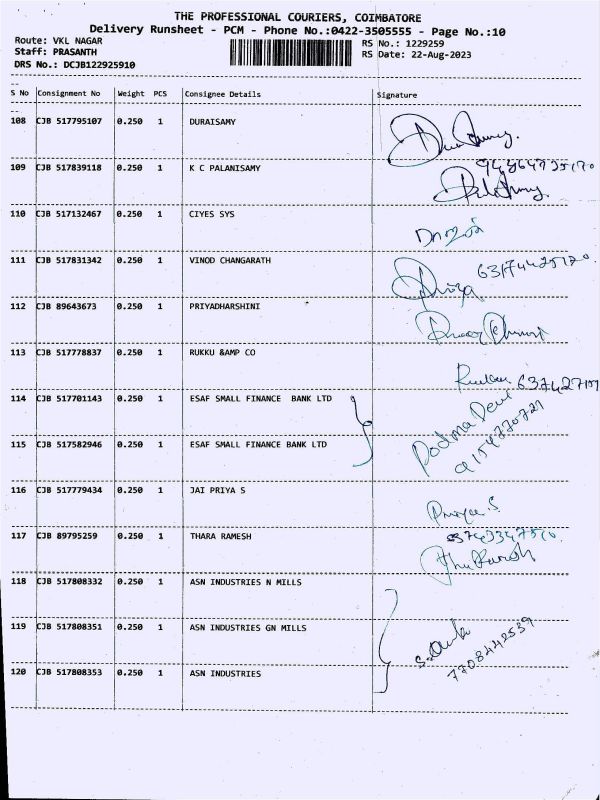 THE PROFESSIONAL COURIERS, COIMBATORE
Delivery Runsheet - PCM - Phone No.:0422-3505555 - Page No.:10
Route: VKL NAGAR RS No.: 1229259
Staff: PRASANTH RS Date: 22-Aug-2023
DRS No.: DCJB122925910
S No Consignment No Weight PCS Consignee Details Signature
108 CJB 517795107 0.250 1 DURAISAMY
109 CJB 517839118 0.250 1 K C PALANISAMY
110 CJB 517132467 0.250 1 CIYES SYS
111 CJB 517831342 0.250 1 VINOD CHANGARATH
112 CJB 89643673 0.250 1 PRIYADHARSHINI
113 CJB 517778837 0.250 1 RUKKU &AMP CO
114 CJB 517701143 0.250 1 ESAF SMALL FINANCE BANK LTD
Padma Devi
9154770721
115 CJB 517582946 0.250 1 ESAF SMALL FINANCE BANK LTD
116 CJB 517779434 0.250 1 JAI PRIYA S
Priya S.
117 CJB 89795259 0.250 1 THARA RAMESH
118 CJB 517808332 0.250 1 ASN INDUSTRIES N MILLS
119 CJB 517808351 0.250 1 ASN INDUSTRIES GN MILLS
7708442539
120 CJB 517808353 0.250 1 ASN INDUSTRIES